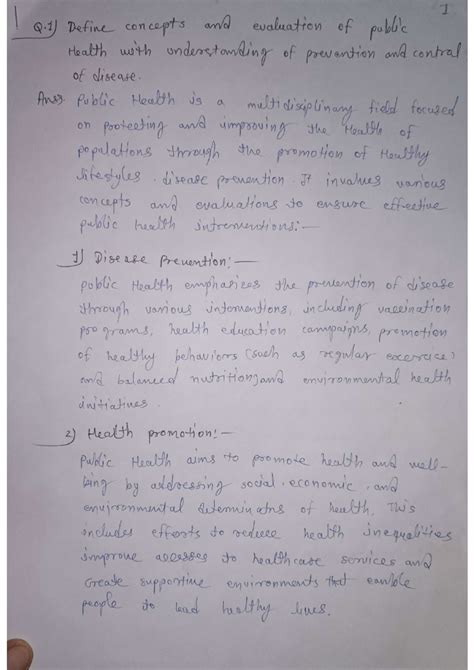 1
Q.1) Define concepts and evaluation of public
Health with understanding of prevention and control
of disease.
Ans. Public Health is a multidisciplinary field focused
on protecting and improving the Health of
populations through the promotion of Healthy
lifestyles. disease prevention. It involves various
concepts and evaluations to ensure effective
public health intreventions:—
1) Disease Prevention:—
public Health emphasizes the prevention of disease
through various interventions, including vaccination
programs, health education campaigns, promotion
of healthy behaviors (such as regular excercise)
and balanced nutrition; and environmental health
initiatives.
2) Health promotion:—
Public Health aims to promote health and well-
being by addressing social. economic. and
environmental determinatns of health. This
includes efforts to reduce health inequalities
improve accesses to healthcare services and
create supportive environments that eanble
people to lead healthy lives.